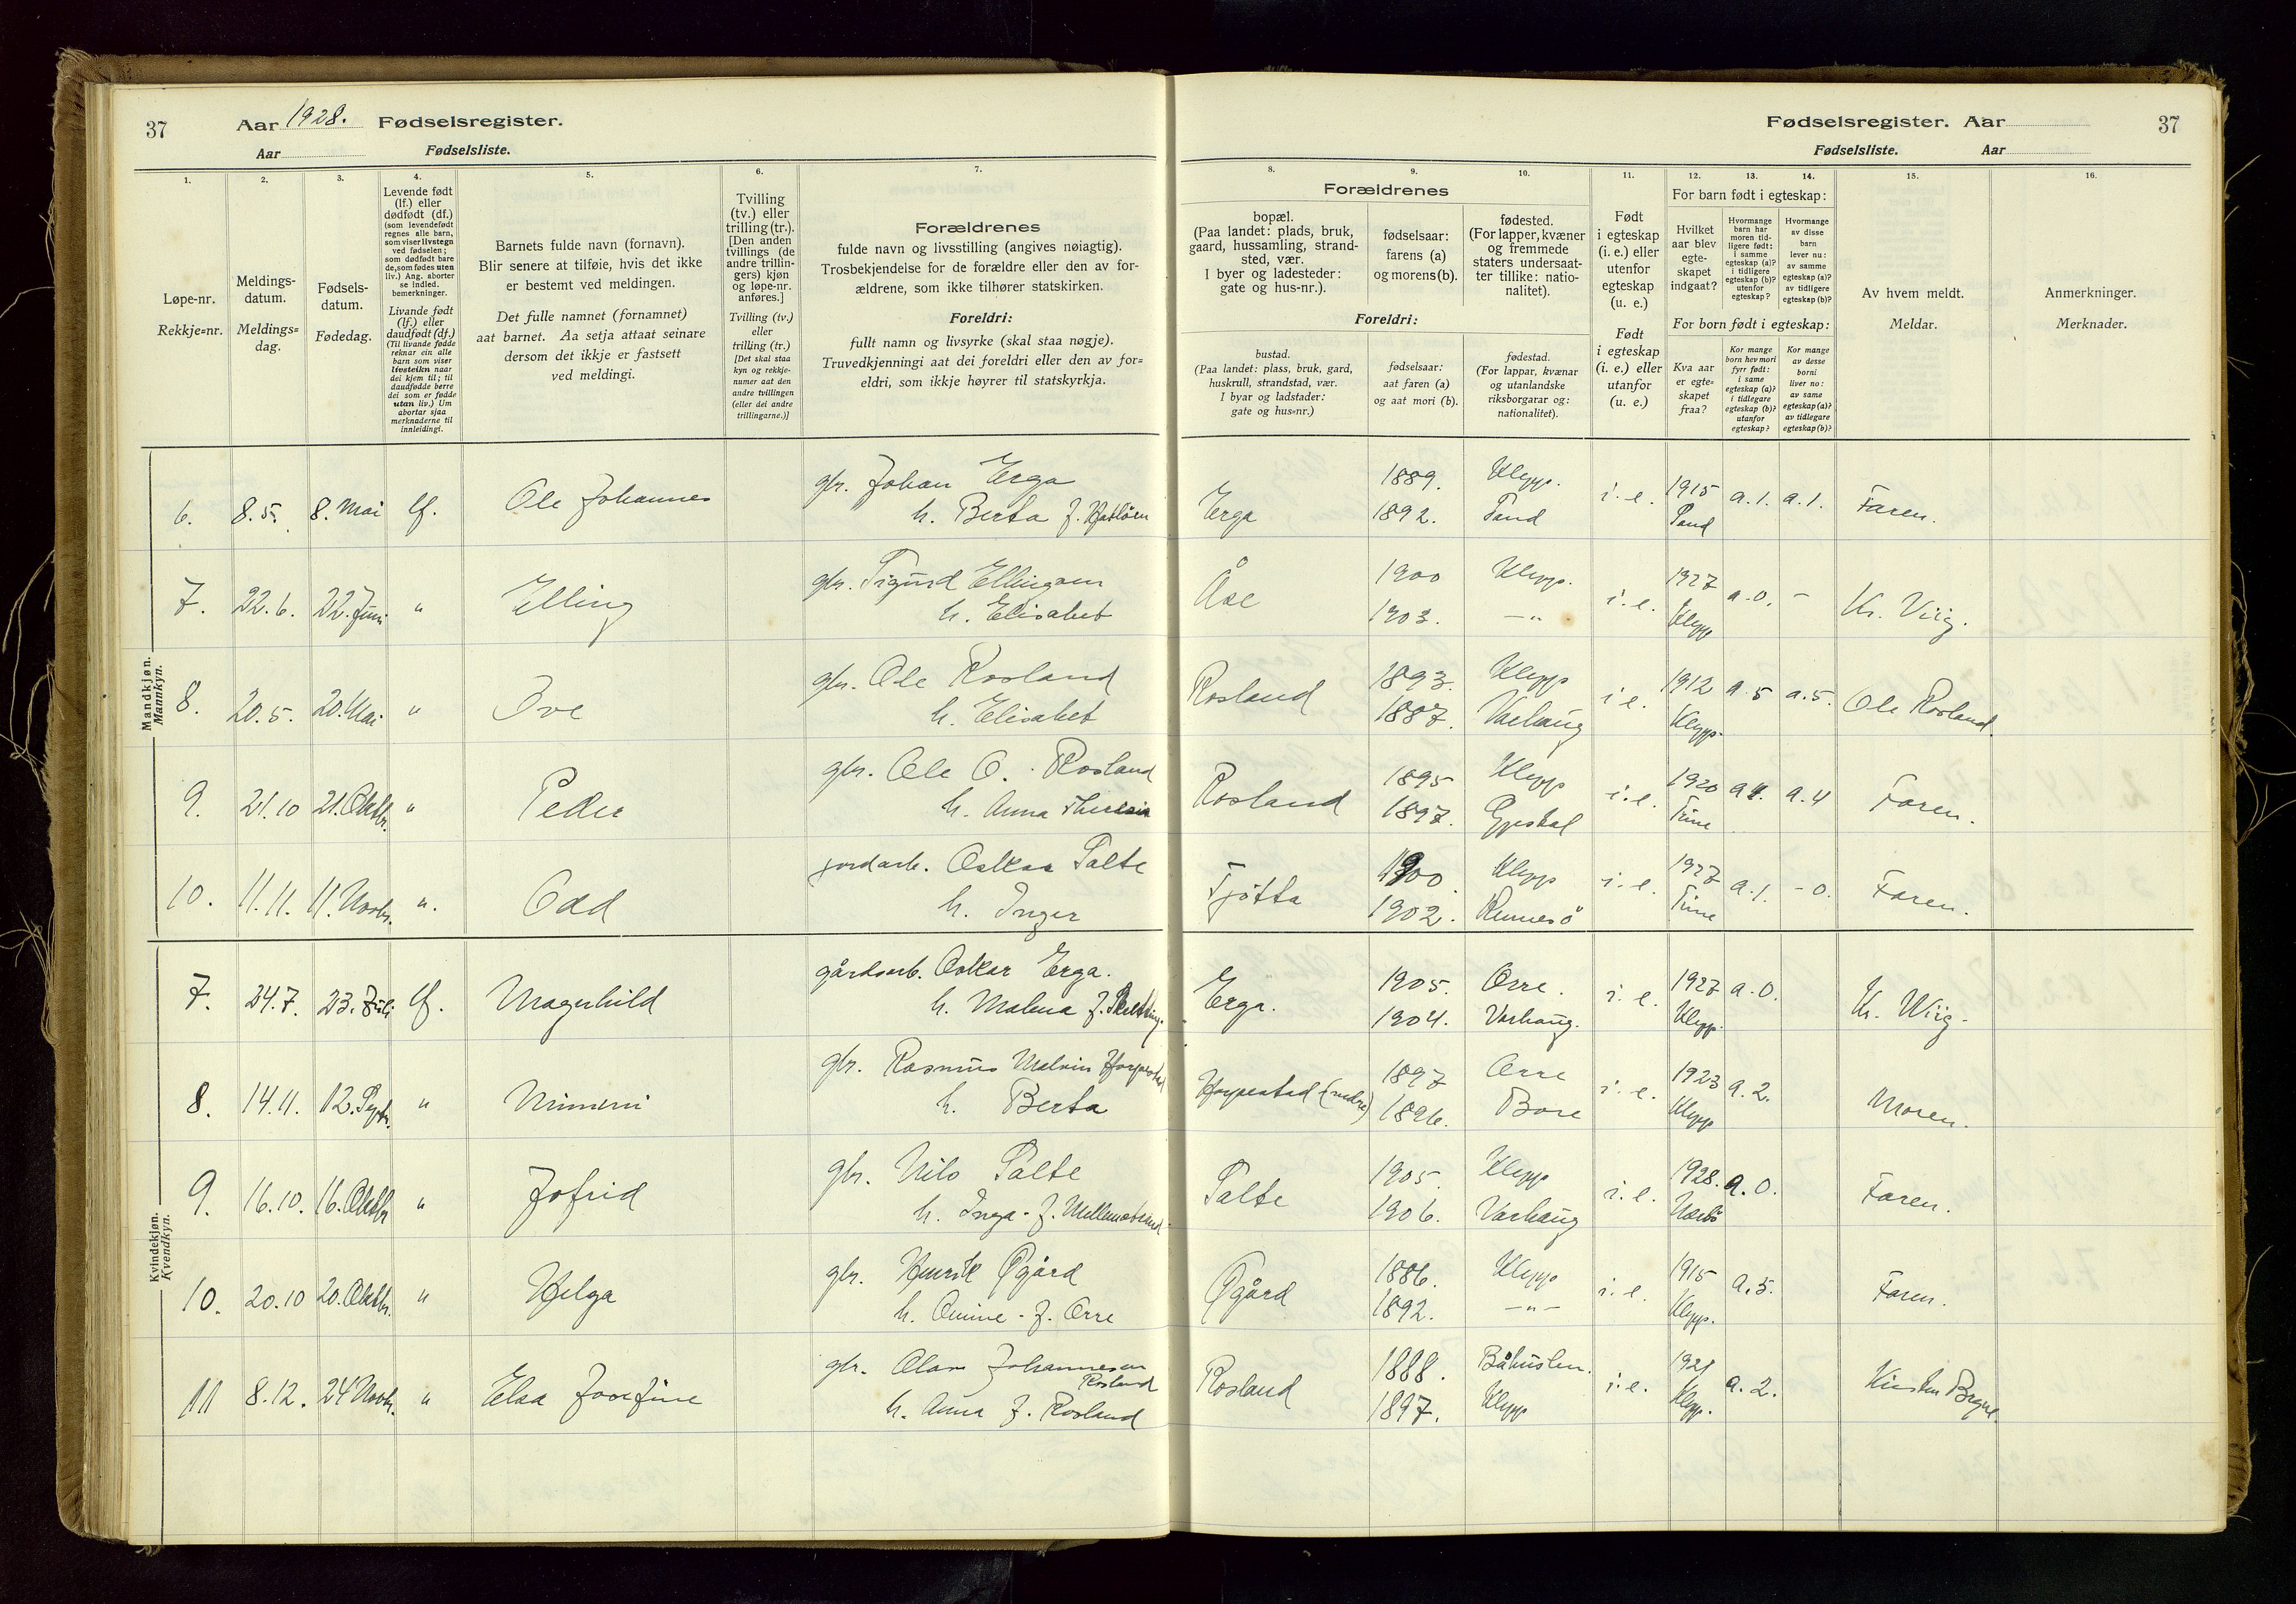 37
Aar 1928. Fødselsregister.
Aar Fødselsliste.
1.
Løpe-nr.
Rekkje=nr.
2.
Meldings-
datum.
Meldings=
dag.
3.
Fødsels-
datum.
Fødedag.
4.
Levende født
(lf.) eller
dødfødt (df.)
(som levendefødt
regnes alle barn,
som viser livstegn
ved fødselen;
som dødfødt bare
de, som fødes uten
liv.) Ang. aborter
se indled.
bemerkninger.
Livande født
(lf.) eller
daudfødt (df.)
(Til livande fødde
reknar ein alle
barn som viser
livsteikn naar
dei kjem til; til
daudfødde berre
dei som er fødde
utan liv.) Um
abortar sjaa
merknaderne til
innleidingi.
5.
Barnets fulde navn (fornavn).
Blir senere at tilføie, hvis det ikke
er bestemt ved meldingen.
Det fulle namnet (fornamnet)
aat barnet. Aa setja attaat seinare
dersom det ikkje er fastsett
ved meldingi.
6.
Tvilling
(tv.) eller
trilling (tr.).
[Den anden
tvillings (de
andre trillin-
gers) kjøn
og løpe-nr.
anføres.]
Tvilling (tv.)
eller
trilling (tr.)
[Det skal staa
kyn og rekkje-
numer aat den
andre tvillingen
(eller dei andre
trillingarne.)]
7.
Forældrenes
fulde navn og livsstilling (angives nøiagtig).
Trosbekjendelse for de forældre eller den av for-
ældrene, som ikke tilhører statskirken.
Foreldri:
fullt namn og livsyrke (skal staa nøgje).
Truvedkjenningi aat dei foreldri eller den av for=
eldri, som ikkje høyrer til statskyrkja.
Mandkjøn.
Mannkyn.
6. 8.5. 8. Mai lf. Ole Johannes gbr. Johan Erga
h. Berta f.
7. 22.6. 22. Juni " Elling gbr. Sigurd Ellingsen
h. Elisabet
8. 20.5. 20. Mai " Ove gbr. Ole Rosland
h. Elisabet
9. 21.10 21. Oktbr. " Peder gbr. Ole O. Rosland
h. Anna Theresia
10. 11.11. 11. Novbr. " Odd jordarb. Oskar Salte
h. Inger
Kvindekjøn.
Kvendkyn.
7. 24.7. 23. Juli lf. Magnhild gårdsarb. Oskar Erga.
h. Malena f.
8. 14.11. 12. Septr. " Mimmi gbr. Rasmus Malvin Horpestad
h. Berta
9. 16.10. 16. Oktbr " Jofrid gbr. Nils Salte
h. Inga - f. Mellemstrand
10. 20.10 20. Oktbr. " Helga gbr. Henrik Øgård
h. Amine - f. Orre
11 8.12. 24 Novbr. " Elsa Josefine gbr. Olav Johannesen
Rosland
h. Anna f. Rosland
Fødselsregister. Aar 37
Fødselsliste. Aar
8.
Forældrenes
bopæl.
(Paa landet: plads, bruk,
gaard, hussamling, strand-
sted, vær.
I byer og ladesteder:
gate og hus-nr.).
Foreldri:
bustad.
(Paa landet: plass, bruk, gard,
huskrull, strandstad, vær.
I byar og ladstader:
gate og hus=nr.)
9.
fødselsaar:
farens (a)
og morens (b).
fødselsaar:
aat faren (a)
og aat mori (b).
10.
fødested.
(For lapper, kvæner
og fremmede
staters undersaat-
ter tillike: natio-
nalitet).
fødestad.
(For lappar, kvænar
og utanlandske
riksborgarar og:
nationalitet).
11.
Født
i egteskap
(i. e.) eller
utenfor
egteskap
(u. e.)
Født
i egteskap
(i. e.) eller
utanfor
(u. e.)
12. 13. 14.
For barn født i egteskap:
Hvilket
aar blev
egte-
skapet
indgaat?
Hvormange
barn har
moren tid-
ligere født:
i samme
egteskap (a)?
i tidligere
egteskap (b)?
utenfor
egteskap?
Hvormange
av disse
barn
lever nu:
av samme
egteskap (a)?
av tidligere
egteskap (b)?
For born født i egteskap:
Kva aar
er egte=
skapet
fraa?
Kor mange
born hev mori
fyrr født:
i same
egteskap (a)?
i tidlegare
egteskap (b)?
utanfor
egteskap?
Kor mange
av desse
borni
liver no:
av same
egteskap (a)?
av tidlegare
egteskap (b)?
15.
Av hvem meldt.
Meldar.
16.
Anmerkninger.
Merknader.
Erga 1889. Klepp. i. e. 1915 a. 1. a. 1. Faren.
1892. Sand Sand
Åse 1900 Klepp. i. e. 1927 a. 0. - Kr. Viig.
1903. -"- Klepp
Rosland 1893. Klepp i e. 1912 a. 5 a. 5. Ole Rosland.
1887. Varhaug Klepp.
Rosland 1895 Klepp i. e. 1920 a 4. a. 4 Faren.
1897. Time
Tjøtta 1900. Klepp i. e. 1927 a. 1. - 0. Faren.
1902. Rennesö Time
Erga. 1905. Orre. i. e. 1927 a. 0. Kr. Wiig.
1904. Varhaug. Klepp.
Horpestad (nedre) 1897 Orre i. e. 1923 a. 2. Moren.
1896. Bore Klepp
Salte 1905. Klepp i. e. 1928. a. 0. Faren.
1906. Varhaug Nærbö
Øgård 1886. Klepp i. e. 1915 a. 5. Faren.
1892. -"- Klepp.
Rosland 1888. Båhuslen. i. e. 1921 a. 2. Kirsten Bryne.
1897. Klepp Klepp.